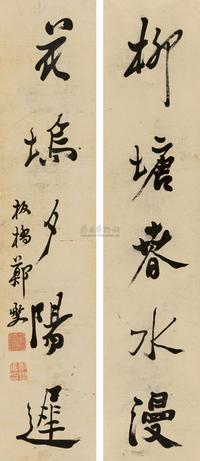 柳塘春水漫
花塢夕陽遲
板橋鄭燮